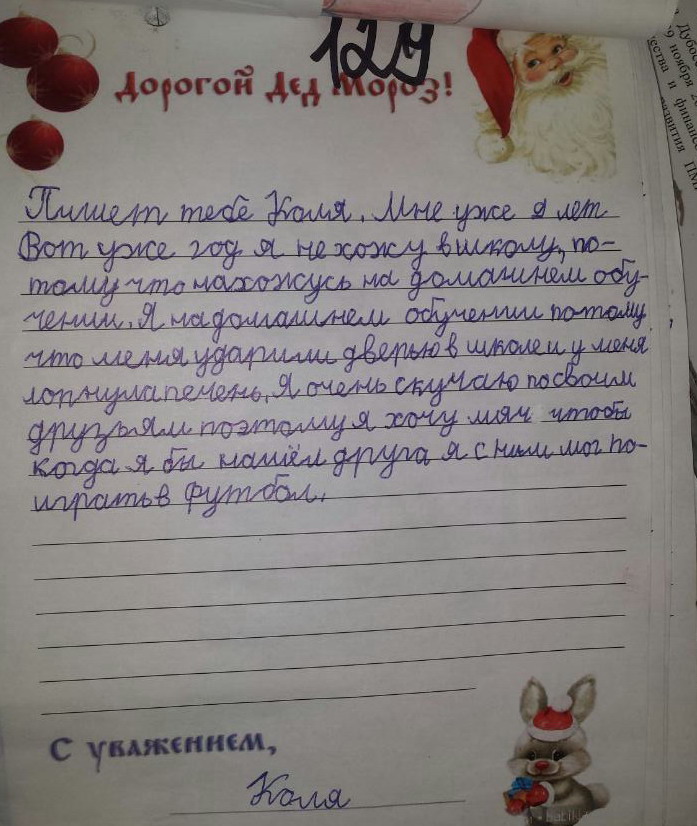 129
Дорогой Дед Мороз!
Пишет тебе Коля. Мне уже 9 лет
Вот уже год я не хожу в школу, по-
тому что нахожусь на домашнем обу-
чении. Я на домашнем обучении потому
что меня ударили дверью в школе и у меня
лопнула печень. Я очень скучаю по своим
друзьям поэтому я хочу мяч чтобы
когда я бы нашёл друга я с ним мог по-
играть в футбол.
С уважением,
Коля